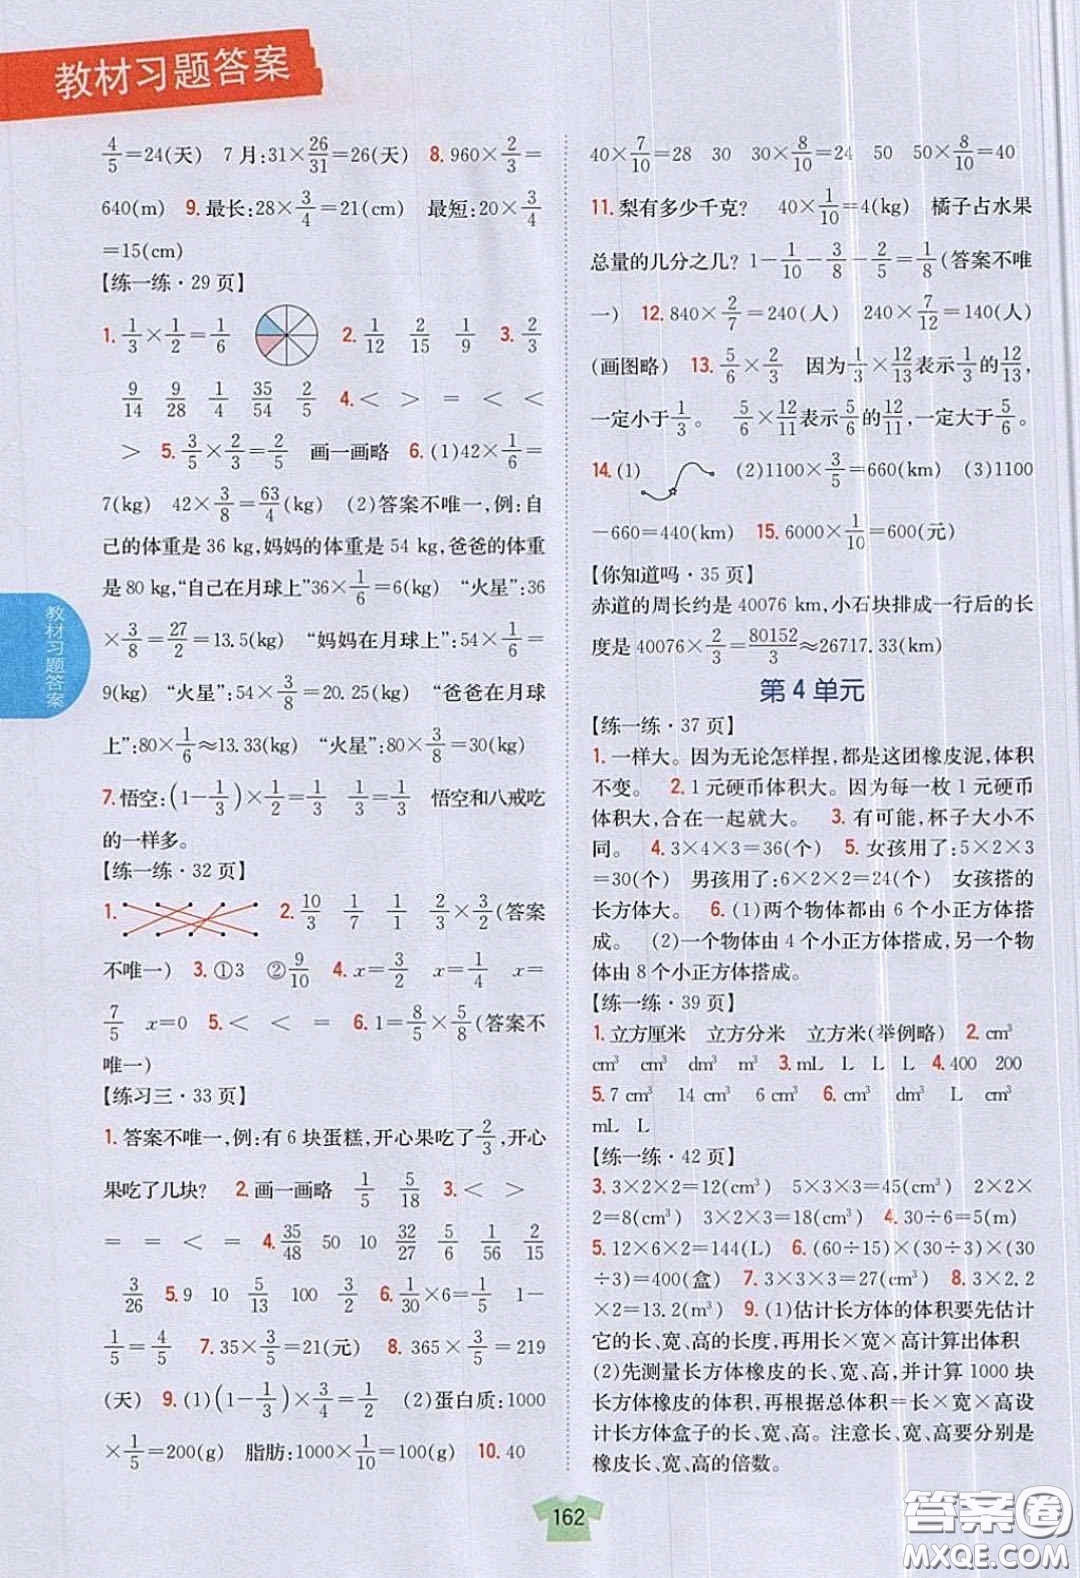 教材习题答案
4/5=24(天) 7月:31×26/31=26(天) 8. 960×2/3=
640(m) 9. 最长:28×3/4=21(cm) 最短:20×3/4
=15(cm)
【练一练·29页】
1. 1/3×1/2=1/6 2. 1/12 2/15 1/9 3. 2/3
9/14 9/28 1/4 35/54 2/5 4. < > = < <
> 5. 3/5×2/3=2/5 画一画略 6. (1)42×1/6=
7(kg) 42×3/8=63/4(kg) (2)答案不唯一,例:自
己的体重是 36 kg,妈妈的体重是 54 kg,爸爸的体重
是 80 kg,“自己在月球上”36×1/6=6(kg) “火星”:36
×3/8=27/2=13.5(kg) “妈妈在月球上”:54×1/6=
9(kg) “火星”:54×3/8=20.25(kg) “爸爸在月球
上”:80×1/6≈13.33(kg) “火星”:80×3/8=30(kg)
7. 悟空:(1-1/3)×1/2=1/3 1/3=1/3 悟空和八戒吃
的一样多。
【练一练·32页】
1. 2. 10/3 1/7 1/1 2/3×3/2(答案
不唯一) 3. ①3 ②9/10 4. x=3/2 x=1/4 x=
7/5 x=0 5. < < = 6. 1=8/5×5/8(答案不
唯一)
【练习三·33页】
1. 答案不唯一,例:有 6 块蛋糕,开心果吃了2/3,开心
果吃了几块? 2. 画一画略 1/5 5/18 3. < >
= = < = 4. 35/48 50 10 32/27 5/6 1/56 2/15
3/26 5. 9 10 5/13 100 3/2 6. 1/30×6=1/5 1-
1/5=4/5 7. 35×3/5=21(元) 8. 365×3/5=219
(天) 9. (1)(1-1/3)×3/4=1/2 (2)蛋白质:1000
×1/5=200(g) 脂肪:1000×1/10=100(g) 10. 40
40×7/10=28 30 30×8/10=24 50 50×8/10=40
11. 梨有多少千克? 40×1/10=4(kg) 橘子占水果
总量的几分之几? 1-1/10-3/8-2/5=1/8(答案不唯
一) 12. 840×2/7=240(人) 240×7/12=140(人)
(画图略) 13. 5/6×2/3 因为1/3×12/13表示1/3的12/13,
一定小于1/3。 5/6×12/11表示5/6的12/11,一定大于5/6。
14. (1) (2)1100×3/5=660(km) (3)1100
-660=440(km) 15. 6000×1/10=600(元)
【你知道吗·35页】
赤道的周长约是 40076 km,小石块排成一行后的长
度是 40076×2/3=80152/3≈26717.33(km)
第 4 单元
【练一练·37页】
1. 一样大。因为无论怎样捏,都是这团橡皮泥,体积
不变。 2. 1 元硬币体积大。因为每一枚 1 元硬币
体积大,合在一起就大。 3. 有可能,杯子大小不
同。 4. 3×4×3=36(个) 5. 女孩用了:5×2×3
=30(个) 男孩用了:6×2×2=24(个) 女孩搭的
长方体大。 6. (1)两个物体都由 6 个小正方体搭
成。 (2)一个物体由 4 个小正方体搭成,另一个物
体由 8 个小正方体搭成。
【练一练·39页】
1. 立方厘米 立方分米 立方米(举例略) 2. cm³
cm³ cm³ dm³ m³ 3. mL L L L 4. 400 200
5. 7 cm³ 14 cm³ 6 cm³ 6. cm³ dm³ L cm³
mL L
【练一练·42页】
3. 3×2×2=12(cm³) 5×3×3=45(cm³) 2×2×
2=8(cm³) 3×2×3=18(cm³) 4. 30÷6=5(m)
5. 12×6×2=144(L) 6. (60÷15)×(30÷3)×(30
÷3)=400(盒) 7. 3×3×3=27(m³) 8. 3×2.2
×2=13.2(m³) 9. (1)估计长方体的体积要先估计
它的长、宽、高的长度,再用长×宽×高计算出体积
(2)先测量长方体橡皮的长、宽、高,并计算 1000 块
长方体橡皮的体积,再根据总体积=长×宽×高设
计长方体盒子的长、宽、高。注意长、宽、高要分别是
橡皮长、宽、高的倍数。
教材习题答案
162
答案圈
MXQE.COM